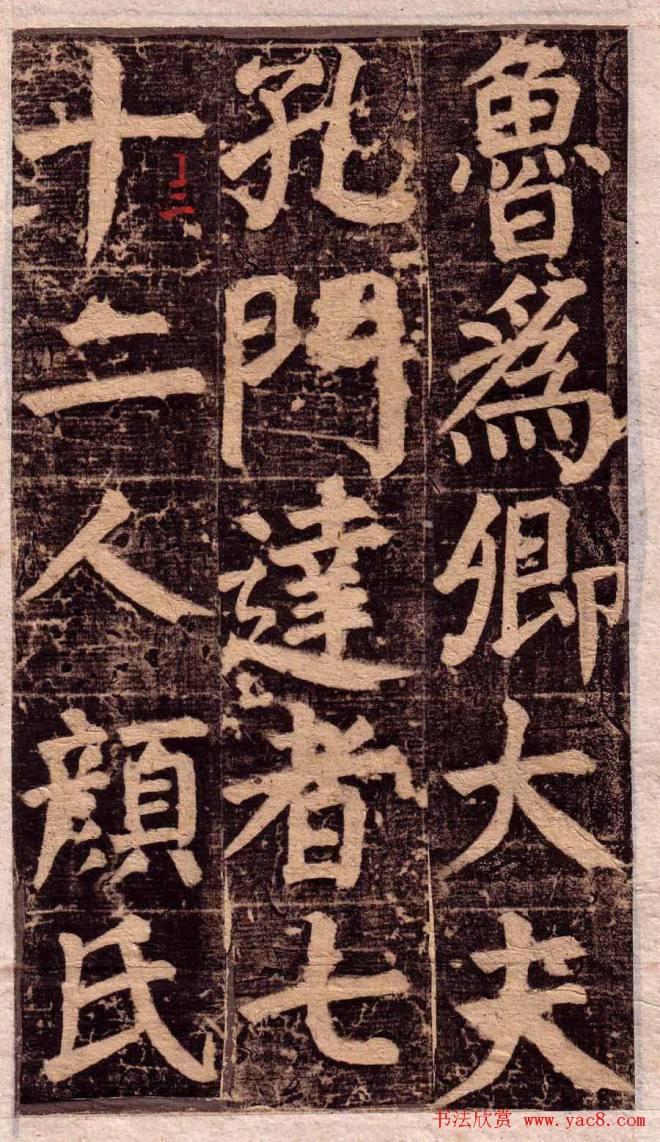 魯爲卿大夫
孔門達者七
十二人顔氏
十二
书法欣赏 www.yac8.com